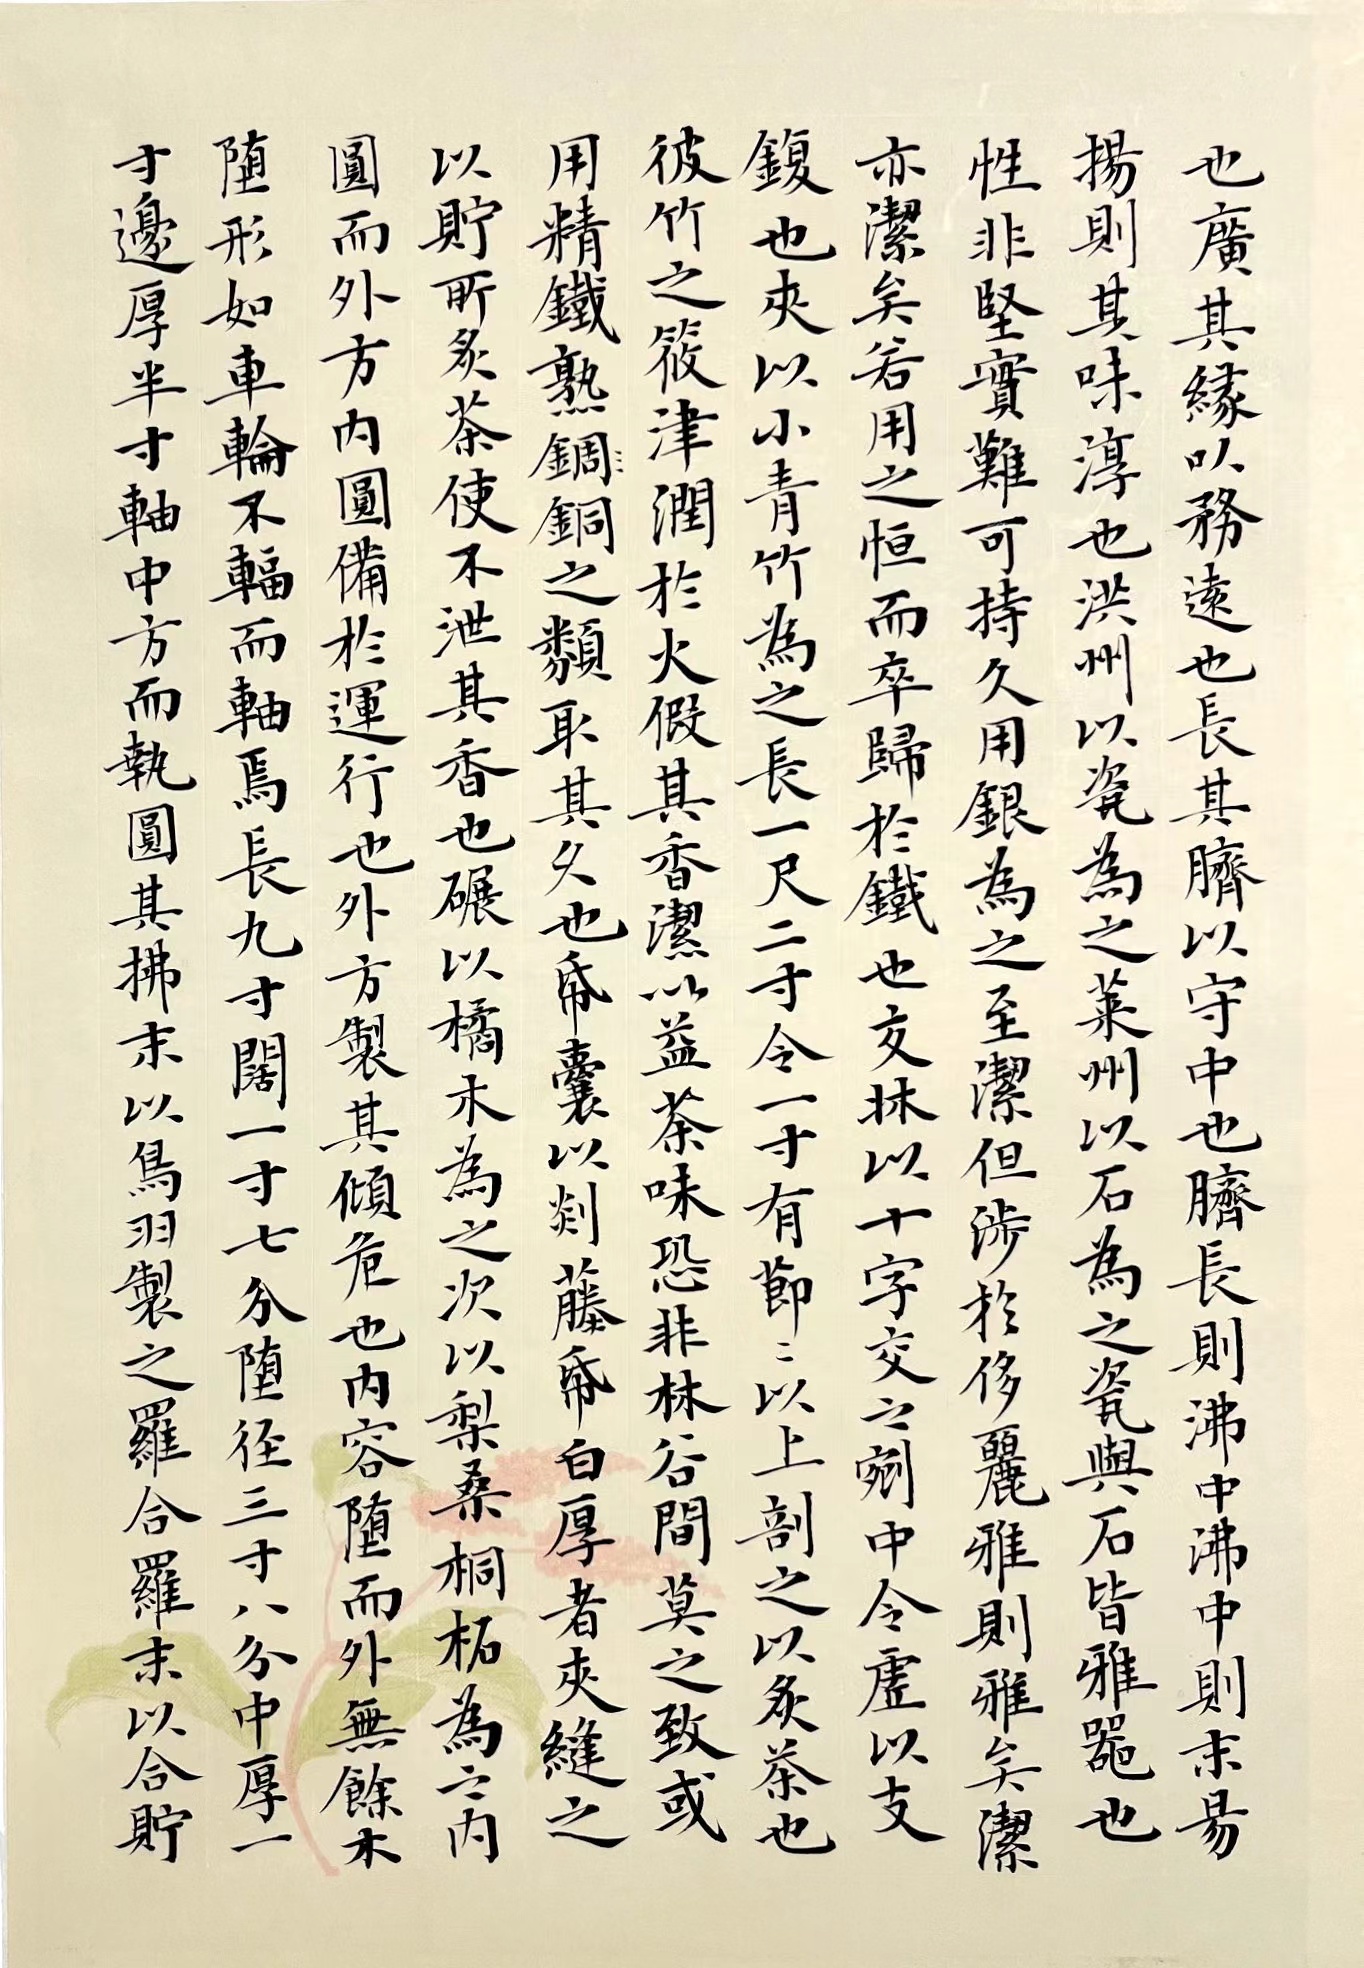 也廣其緣以務遠也長其臍以守中也臍長則沸中沸中則末易
揚則其味淳也洪州以瓷為之萊州以石為之瓷與石皆雅器也
性非堅實難可持久用銀為之至潔但涉於侈麗雅則雅矣潔
亦潔矣若用之恒而卒歸於鐵也交牀以十字交之剜中令虛以支
鍑也夾以小青竹為之長一尺二寸令一寸有節〻以上剖之以炙茶也
彼竹之筱津潤於火假其香潔以益茶味恐非林谷間莫之致或
用精鐵熟錭〻銅之類取其久也帋囊以剡藤帋白厚者夾縫之
以貯所炙茶使不泄其香也碾以橘木為之次以梨桑桐柘為之内
圓而外方内圓備於運行也外方製其傾危也内容堕而外無餘木
堕形如車輪不輻而軸焉長九寸闊一寸七分堕徑三寸八分中厚一
寸邊厚半寸軸中方而執圓其拂末以鳥羽製之羅合羅末以合貯